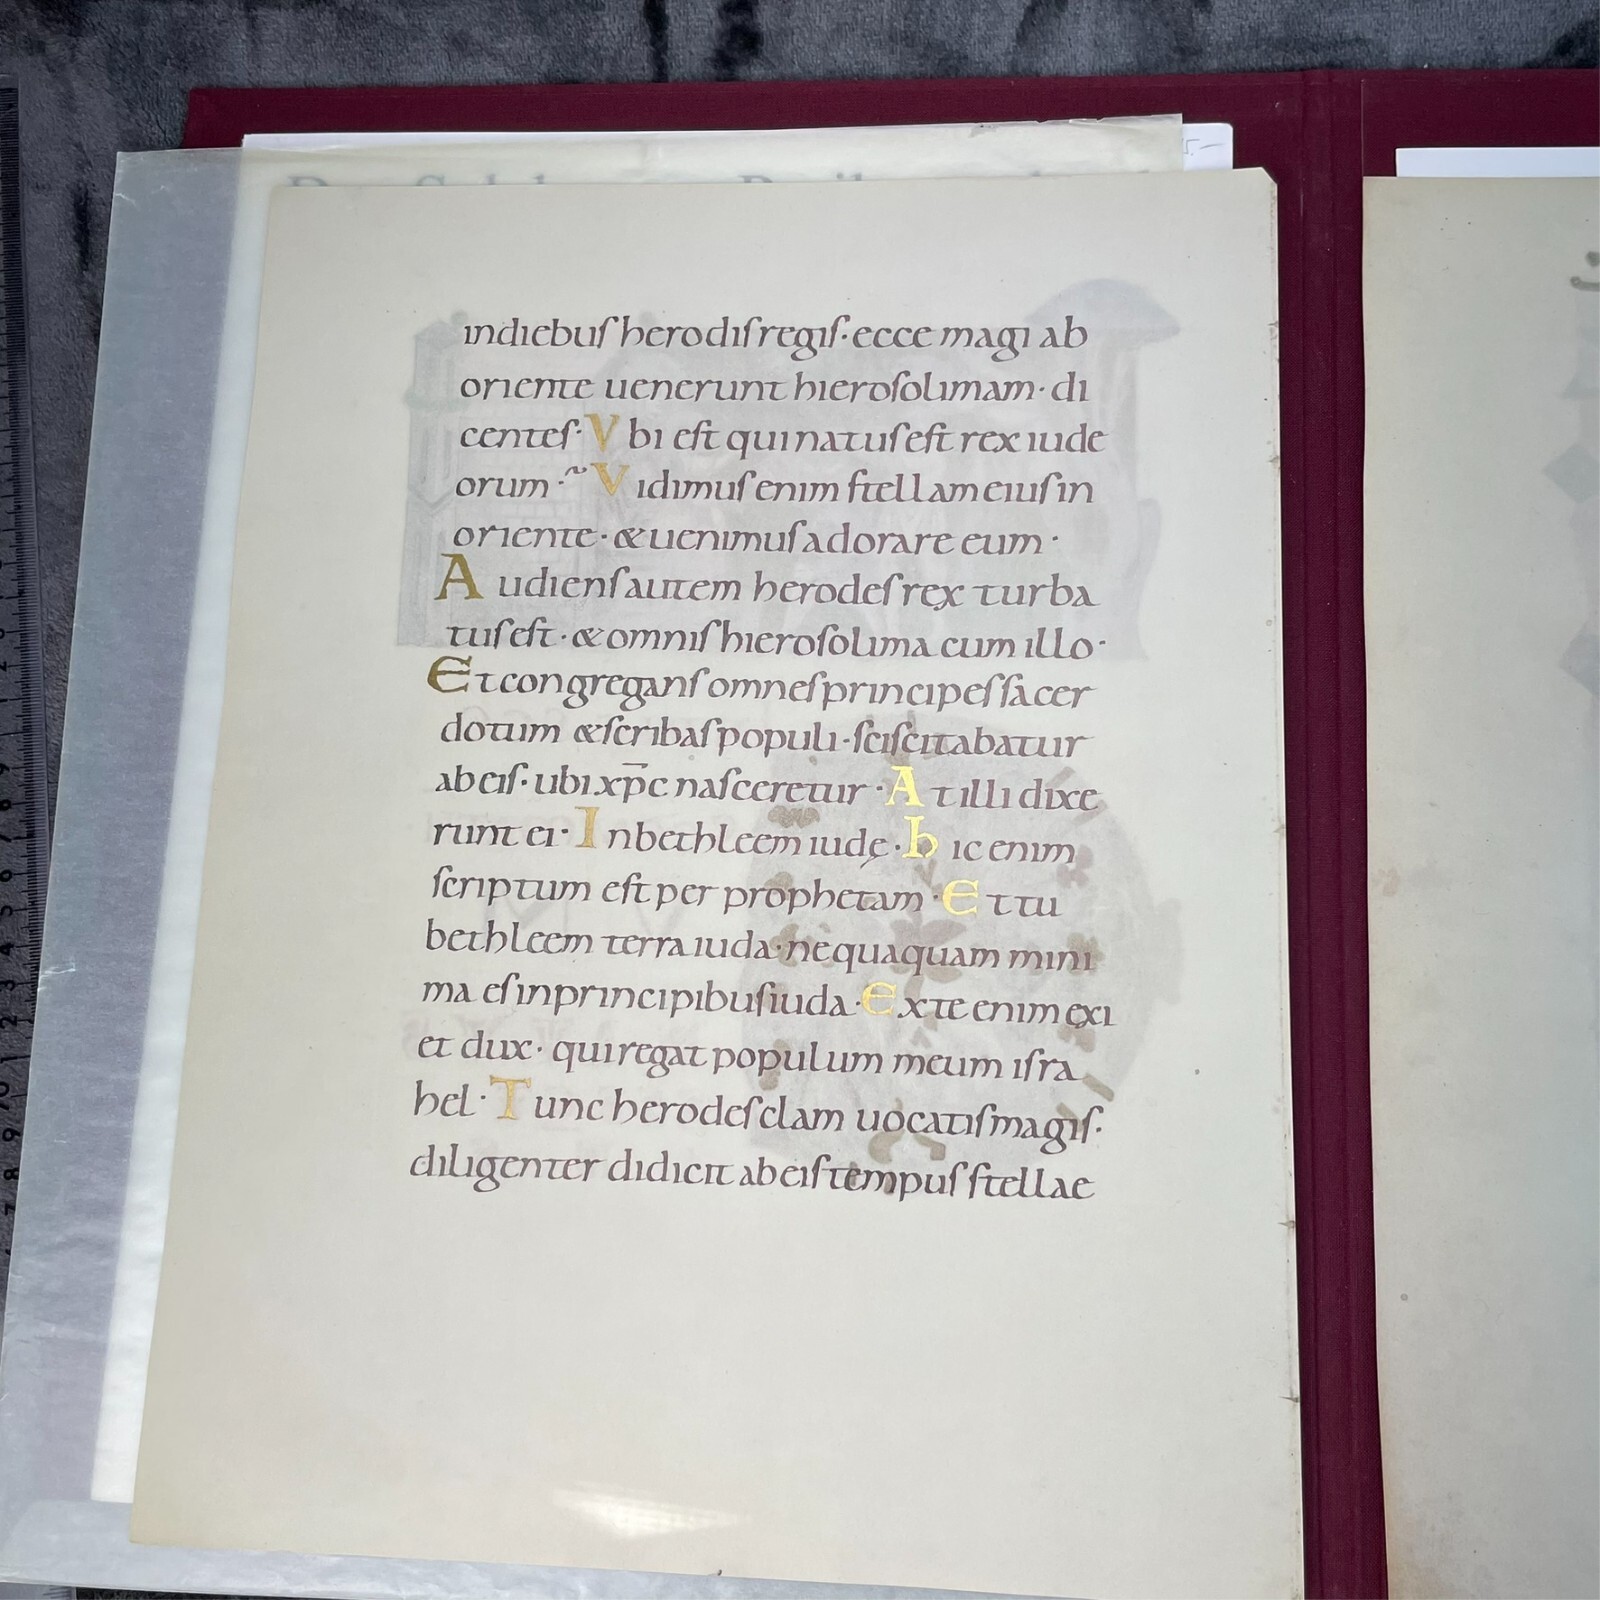 indiebuſ herodiſ regiſ · ecce magi ab
oriente uenerunt hieroſolimam · di
centeſ · Vbi eſt qui natuſ eſt rex iude
orum · Vidimuſ enim ſtellam eiuſ in
oriente · & uenimuſ adorare eum ·
Audienſ autem herodeſ rex turba
tuſ eſt · & omniſ hieroſolima cum illo ·
Et congreganſ omneſ principeſ ſacer
dotum & ſcribaſ populi · ſciſcitabatur
ab eiſ · ubi xp̅c naſceretur · At illi dixe
runt ei · In bethleem iudę · hic enim
ſcriptum eſt per prophetam · Et tu
bethleem terra iuda · nequaquam mini
ma eſ in principibuſ iuda · Ex te enim exi
et dux · qui regat populum meum iſra
hel · Tunc herodeſ clam uocatiſ magiſ ·
diligenter didicit ab eiſ tempuſ ſtellae